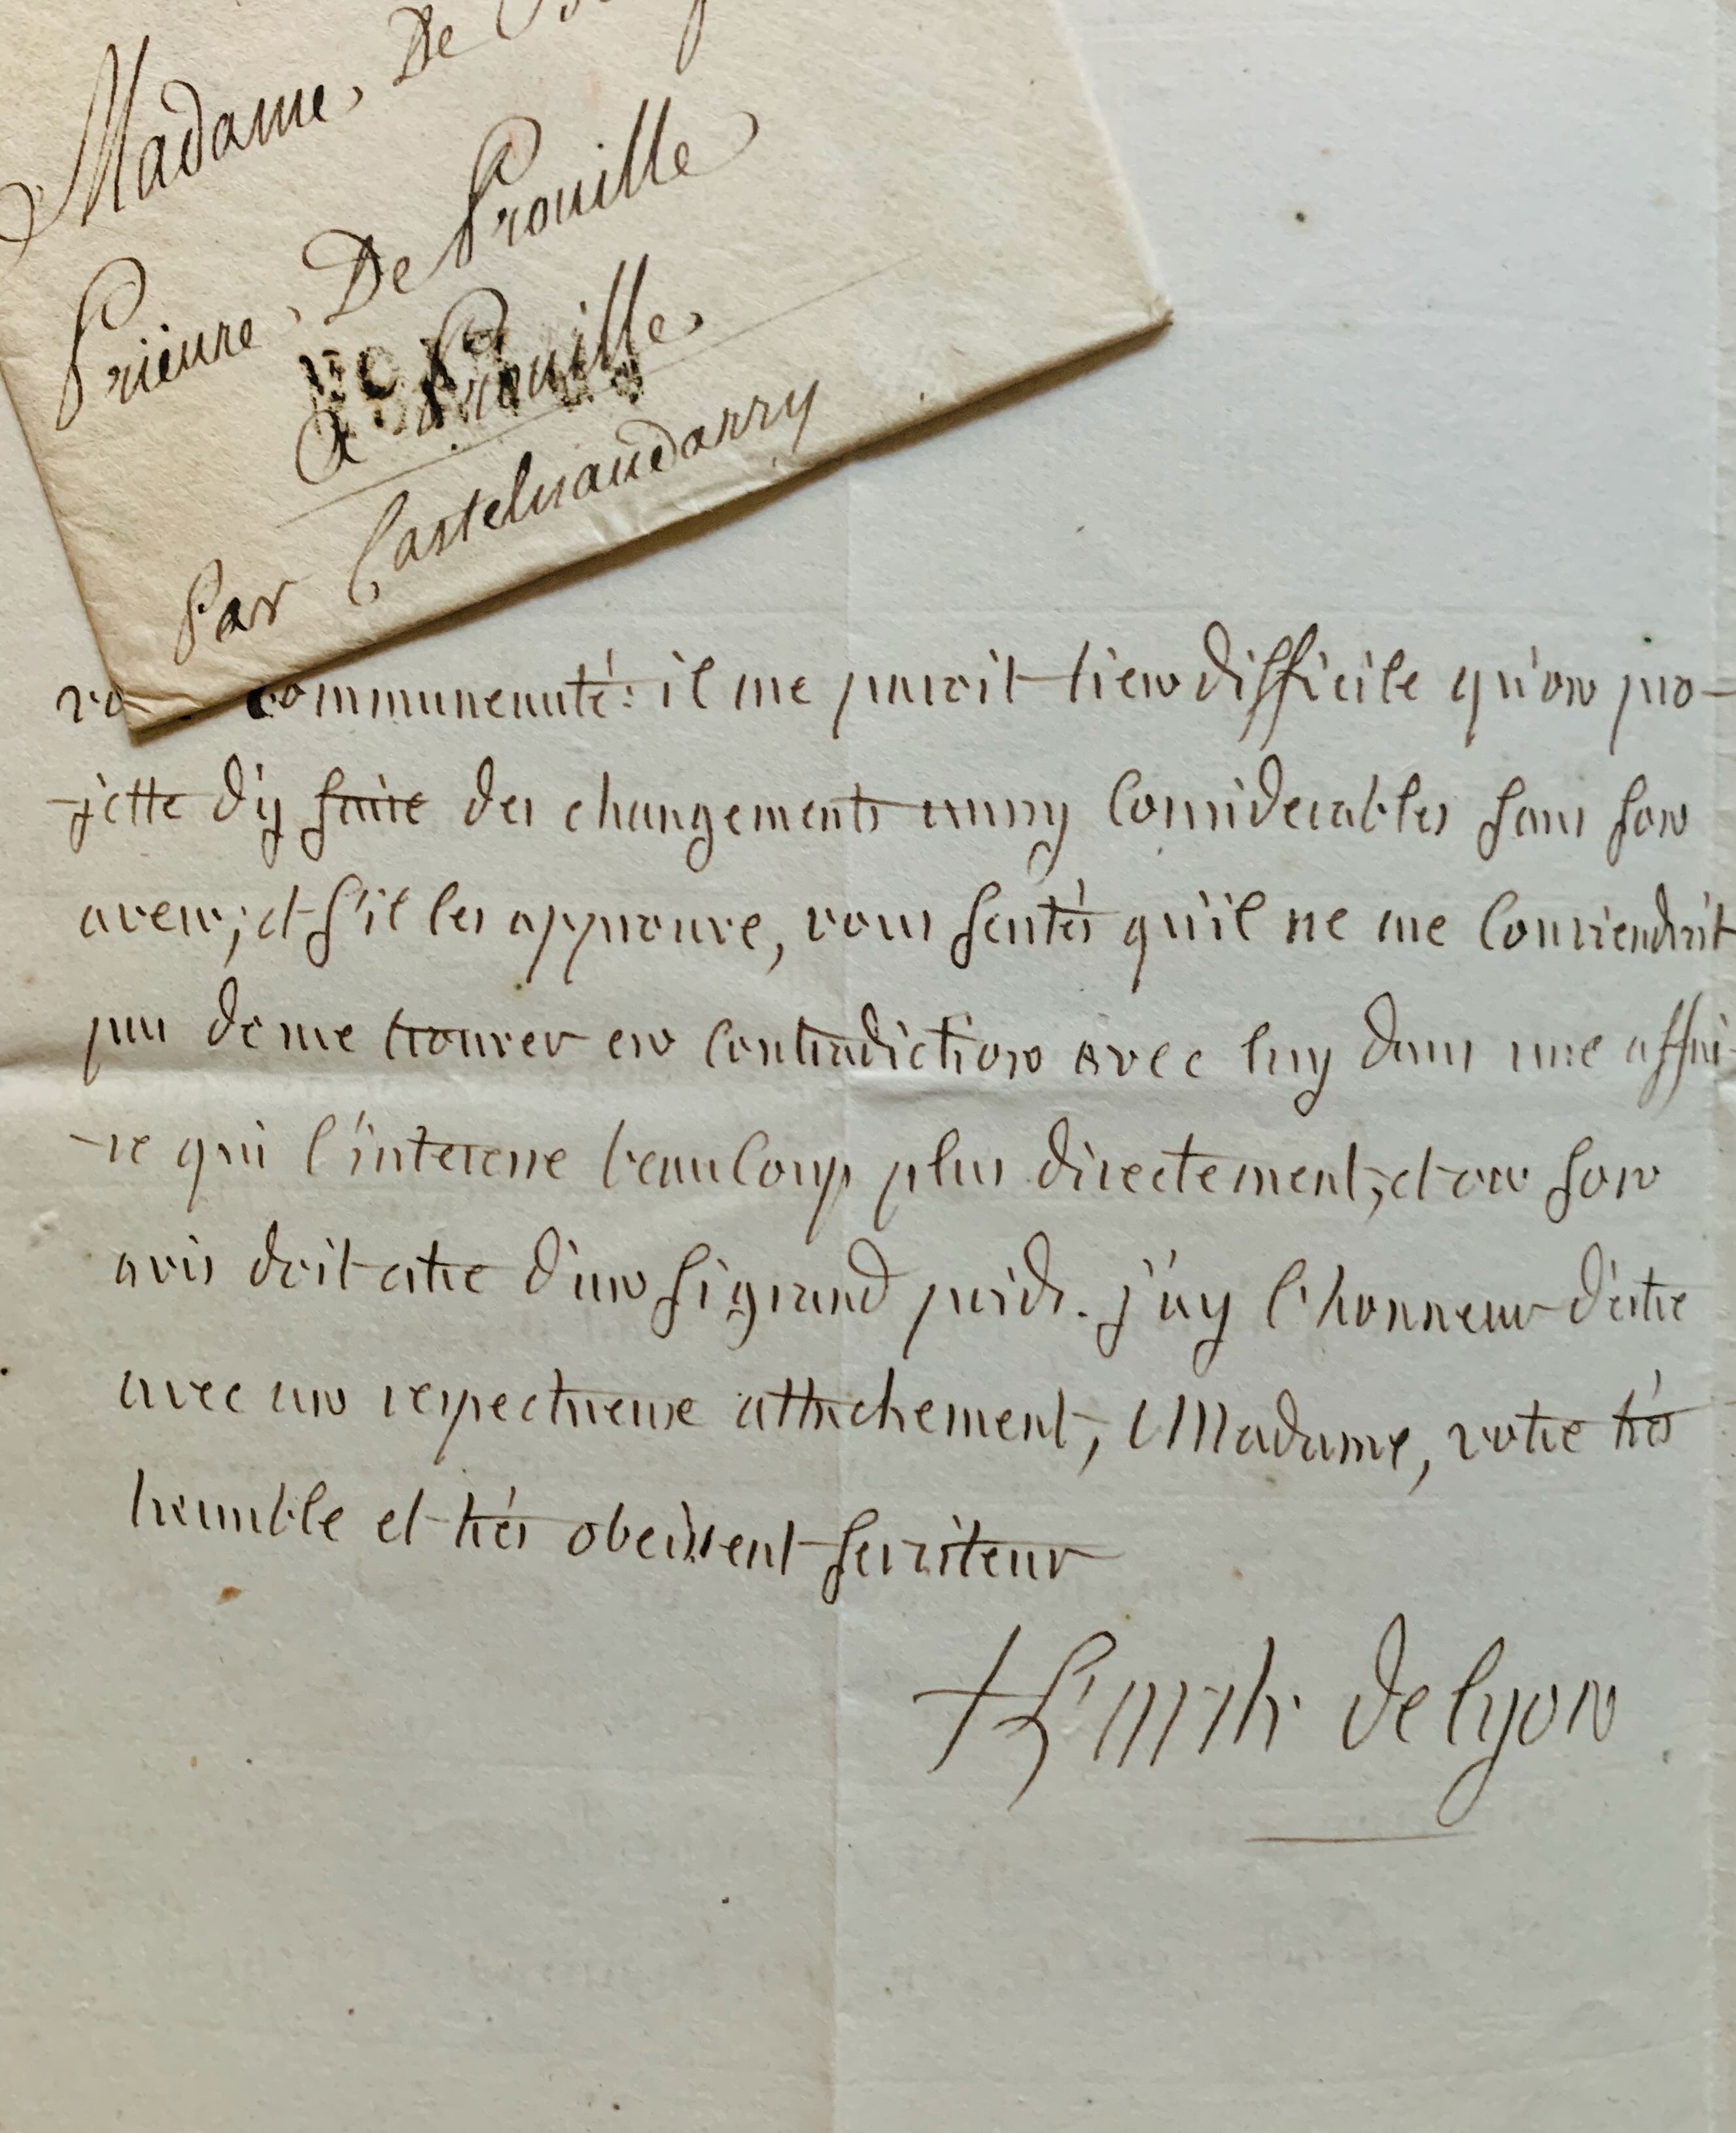 Madame, De
Prieure, De Prouille
a Prouille,
Par Castelnaudarry
communeauté: il me paroit bien difficile qu'on pro-
-jette d'y faire des changements aussy considerables sans son
aveu; et s'il les approuve, vous sentés qu'il ne me conviendroit
pas de me trouver en contradiction avec luy dans une affai-
-re qui l'interesse beaucoup plus directement, et ou son
avis doit etre d'un si grand poids. j'ay l'honneur d'etre
avec un respectueuse attachement, Madame, votre trés
humble et trés obeissent serviteur
+ l'arch. de lyon